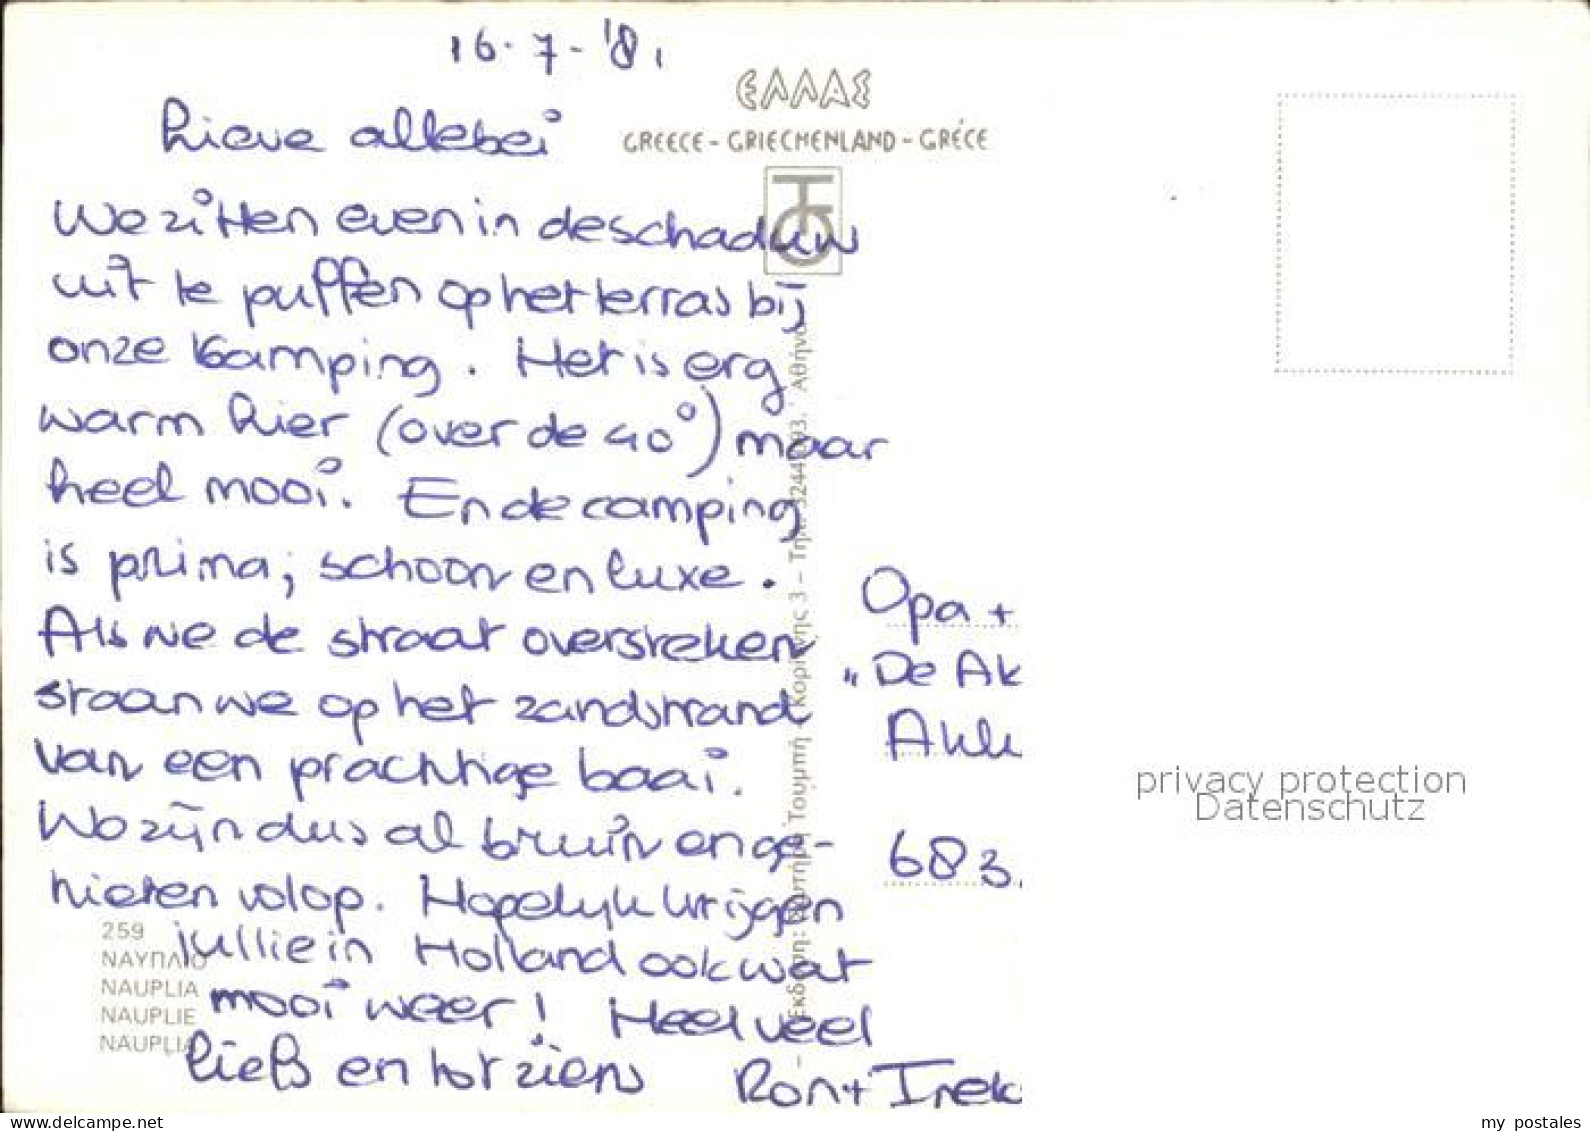 16-7-'81
ΕΛΛΑΣ
GREECE - GRIECHENLAND - GRÉCE
Lieve allebei
We zitten even in de schaduw
uit te puffen op het terras bij
onze kamping. Het is erg
warm hier (over de 40°) maar
heel mooi. En de camping
is prima; schoon en luxe.
Als we de straat oversteken
staan we op het zandstrand
van een prachtige baai.
We zijn dus al bruin en ge-
nieten volop. Hopelijk krijgen
jullie in Holland ook wat
mooi weer! Heel veel
liefs en tot ziens
Ron + Irek
Opa +
"De Ak
Akk
683
259
ΝΑΥΠΛΙΟ
NAUPLIA
NAUPLIE
NAUPLIA
Τουμπή
Κορίννης 3 - Τηλ. Αθήνα
privacy protection
Datenschutz
my postales